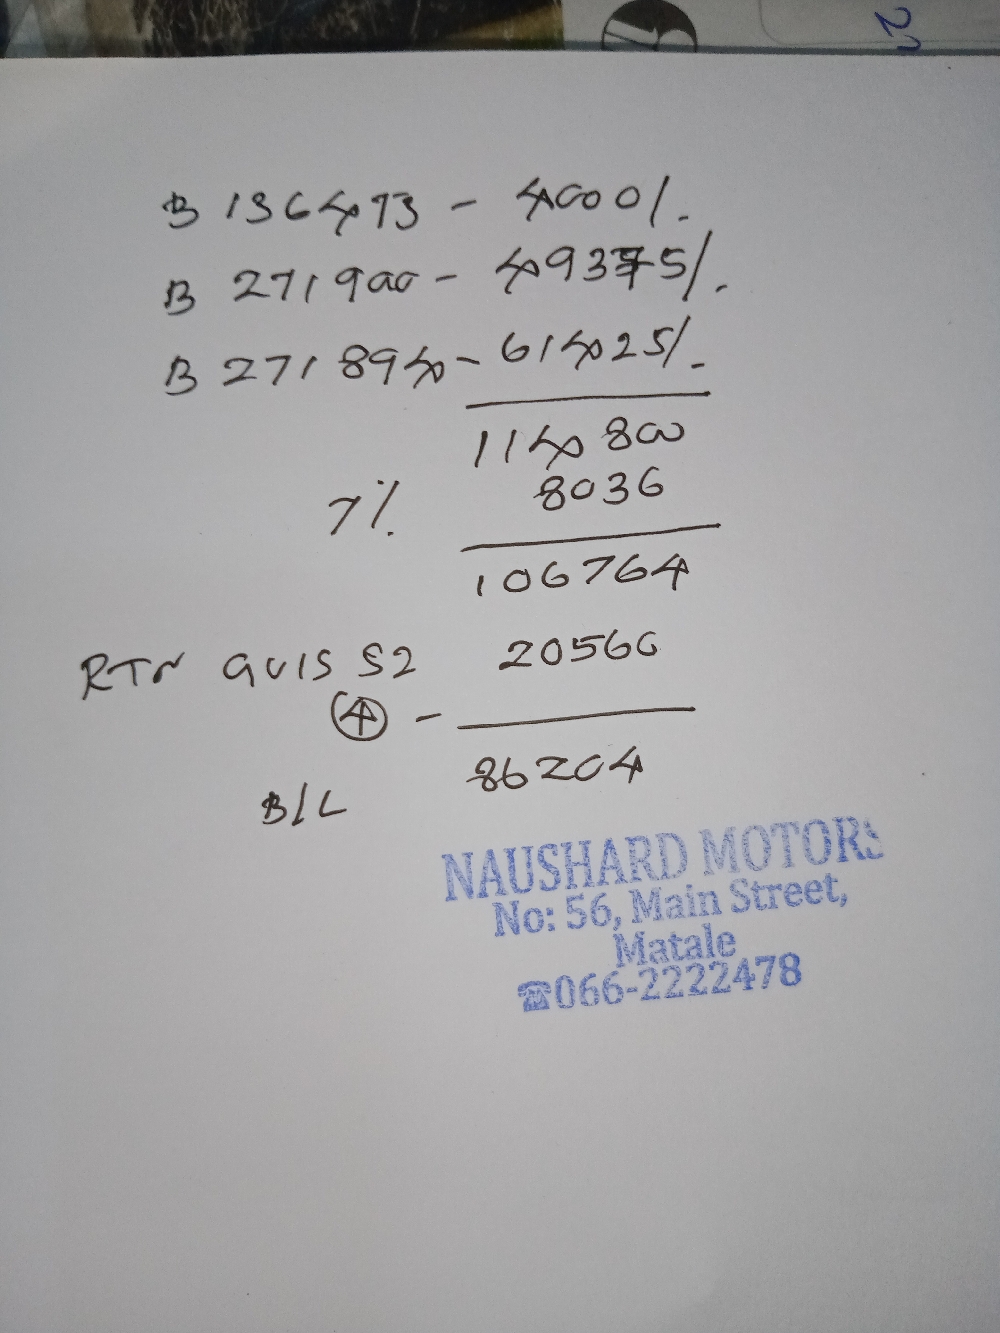 B 136473 - 4000/.
B 271900 - 49375/.
B 271894 - 61425/.
114800
7% 8036
106764
RTN GUIS S2 20560
④ -
B/L 86204
NAUSHARD MOTORS
No: 56, Main Street,
Matale
☎066-2222478